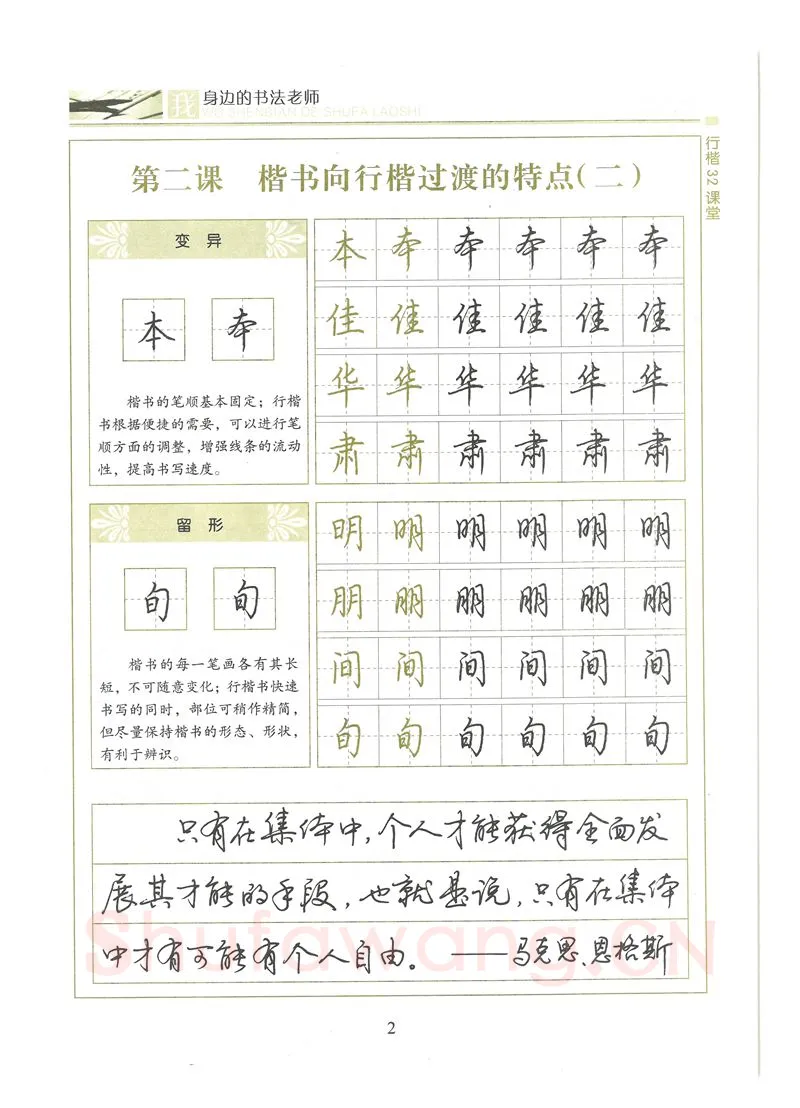 我 身边的书法老师
WO SHENBIAN DE SHUFA LAOSHI
行楷32课堂
第二课 楷书向行楷过渡的特点(二)
变 异
本 本
楷书的笔顺基本固定；行楷
书根据便捷的需要，可以进行笔
顺方面的调整，增强线条的流动
性，提高书写速度。
本 本 本 本 本 本
佳 佳 佳 佳 佳 佳
华 华 华 华 华 华
肃 肃 肃 肃 肃 肃
留 形
旬 旬
楷书的每一笔画各有其长
短，不可随意变化；行楷书快速
书写的同时，部位可稍作精简，
但尽量保持楷书的形态、形状，
有利于辨识。
明 明 明 明 明 明
朋 朋 朋 朋 朋 朋
间 间 间 间 间 间
旬 旬 旬 旬 旬 旬
只有在集体中，个人才能获得全面发
展其才能的手段，也就是说，只有在集体
中才有可能有个人自由。——马克思、恩格斯
Shufawang.CN
2